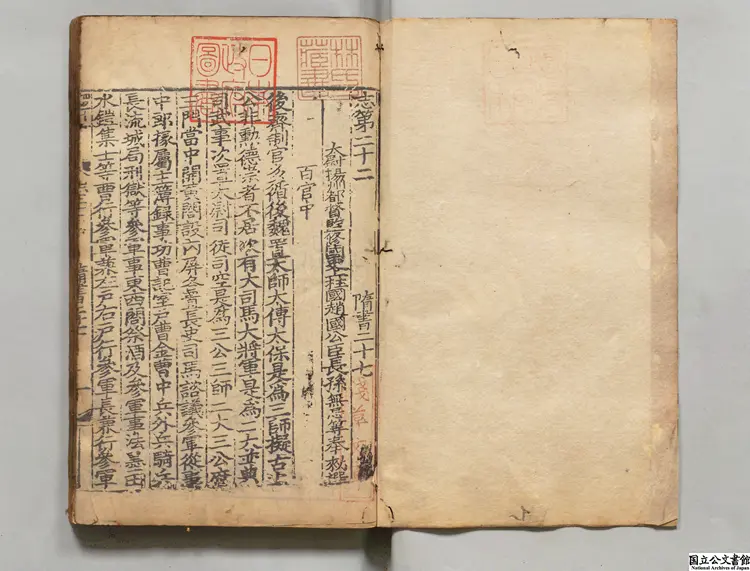 志第二十二 隋書二十七
太尉揚州都督監修國史上柱國趙國公臣長孫無忌等奉勑撰
百官中
後齊制官多循後魏置太師太傅太保是為三師擬古上
公非勳德崇者不居次有大司馬大將軍是為二大並典
司武事次置太尉司徒司空是為三公三師二大三公府
三門當中開黃閤設內屏各置長史司馬諮議參軍從事
中郎掾屬主簿録事功曹記室戶曹金曹中兵外兵騎兵
長流城局刑獄等參軍事東西閤祭酒及參軍事法墨田
水鎧集士等曹行參軍兼左戶右戶行參軍長兼行參軍
日本政府圖書
林氏藏書
国立公文書館
National Archives of Japan